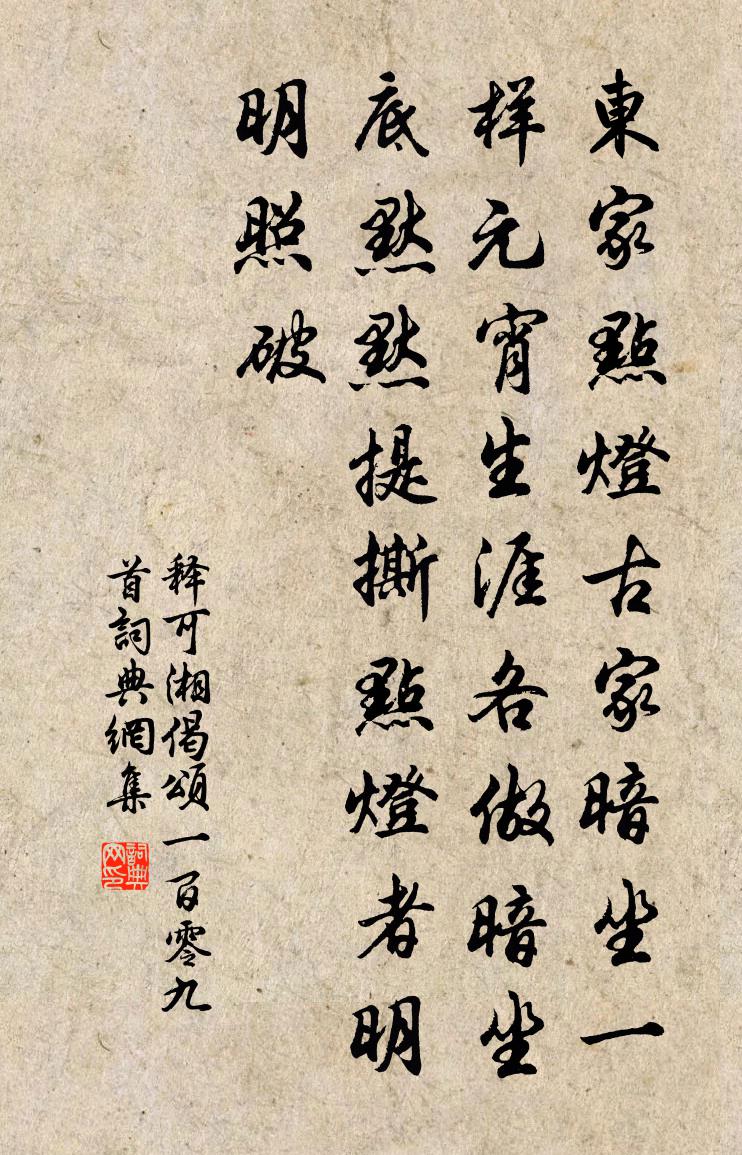 東家點燈古家暗坐一
样元宵生涯各做暗坐
底默默提撕點燈者明
明照破
释可湘偈頌一百零九
首詞典網集
詞典网印